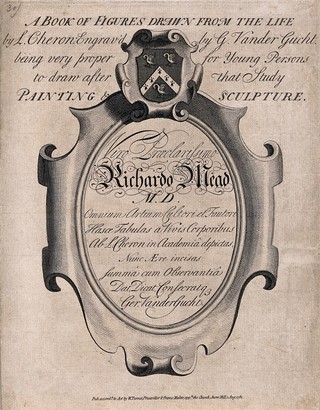 A BOOK OF FIGURES DRAWN FROM THE LIFE
by L. Cheron Engrav'd by G. Vander Gucht,
being very proper for Young Persons
to draw after that Study
PAINTING & SCULPTURE.
Viro Præclarissimo
Richardo Mead
M.D
Omnium Artium Cultori et Fautori
Hasce Tabulas a Vivis Corporibus
Ab L. Cheron in Academia depictas
Nunc Ære incisas
summâ cum Observantiâ
Dat, Dicat, Consecratq;
Ger. VanderGucht
Publ accord to Act by